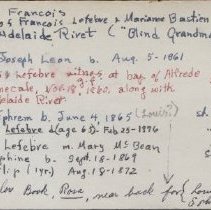 Francois
s of Francois Lefebvre & Marianne Bastien
delaide Rivet ("Blind Grandma
Joseph Leon b. Aug. 5-1861
Lefebvre witness at bap. of Alfredo
Nov. 18, 1860, along with
elaide Rivet
phrem b. June 4, 1865 (Louis?) sh
Lefebvre d (age 65) Feb-25-1976
Lefebvre m. Mary McBean
phine b. Sept. 18-1869
p (1yr) Aug-18-1872
Book, Rose, near back for Loui